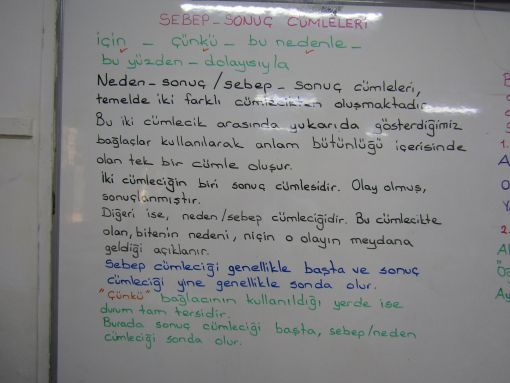 SEBEP-SONUÇ CÜMLELERİ
için - çünkü - bu nedenle -
bu yüzden - dolayısıyla
Neden-sonuç/sebep-sonuç cümleleri,
temelde iki farklı cümlecikten oluşmaktadır.
Bu iki cümlecik arasında yukarıda gösterdiğimiz
bağlaçlar kullanılarak anlam bütünlüğü içerisinde
olan tek bir cümle oluşur.
İki cümleciğin biri sonuç cümlesidir. Olay olmuş,
sonuçlanmıştır.
Diğeri ise, neden/sebep cümleciğidir. Bu cümlecikte
olan, bitenin nedeni, niçin o olayın meydana
geldiği açıklanır.
Sebep cümleciği genellikle başta ve sonuç
cümleciği yine genellikle sonda olur.
"Çünkü" bağlacının kullanıldığı yerde ise
durum tam tersidir.
Burada sonuç cümleciği başta, sebep/neden
cümleciği sonda olur.